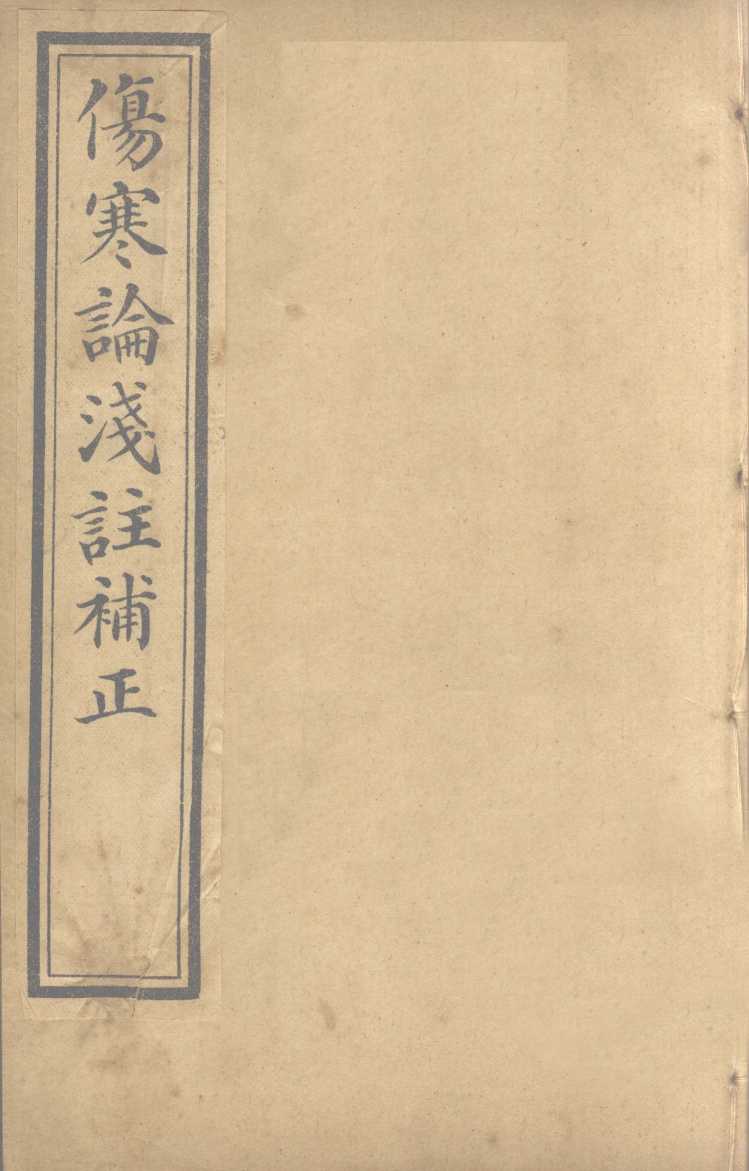 傷寒論淺註補正